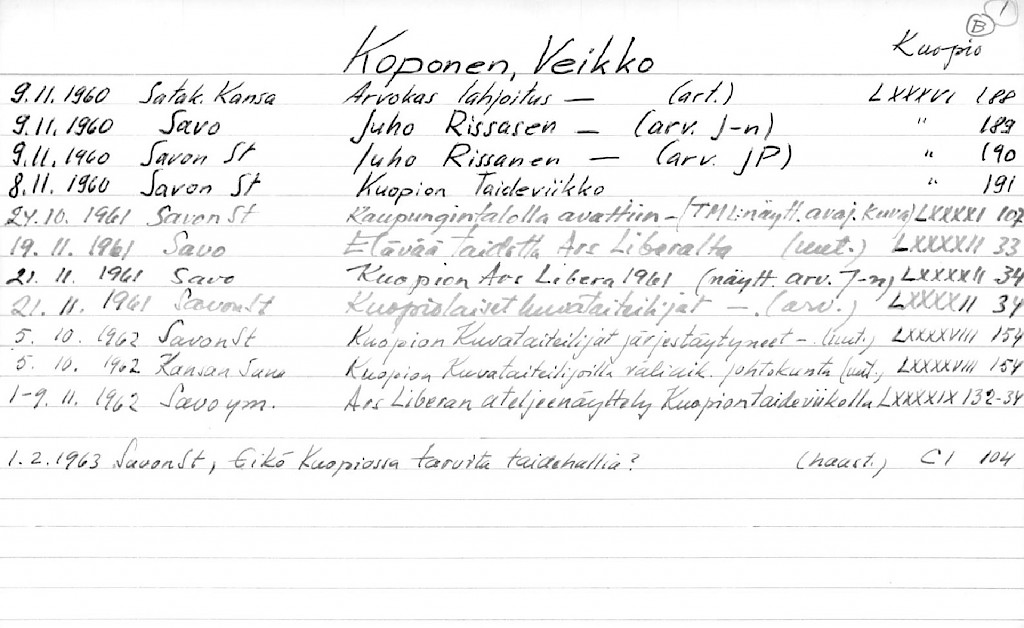 B 1
Koponen, Veikko Kuopio
9.11.1960 Satak. Kansa Arvokas lahjoitus — (art.) LXXXVI 188
9.11.1960 Savo Juho Rissasen — (arv. J-n) " 189
9.11.1960 Savon St Juho Rissanen — (arv. JP) " 190
8.11.1960 Savon St Kuopion Taideviikko " 191
24.10.1961 Savon St Kaupungintalolla avattiin – (TML:näytt. avaj. kuva) LXXXXI 107
19.11.1961 Savo Elävää taidetta Ars Liberalta (uut.) LXXXXII 33
21.11.1961 Savo Kuopion Ars Libera 1961 (näytt. arv. J-n) LXXXXII 34
21.11.1961 Savon St Kuopiolaiset kuvataiteilijat – . (arv.) LXXXXII 34
5.10.1962 Savon St Kuopion Kuvataiteilijat järjestäytyneet – (uut.) LXXXXVIII 154
5.10.1962 Kansan Sana Kuopion Kuvataiteilijoilla väliaik. johtokunta (uut.) LXXXXVIII 154
1-9.11.1962 Savo ym. Ars Liberan ateljeenäyttely Kuopion taideviikolla LXXXXIX 132-34
1.2.1963 Savon St, Eikö Kuopiossa tarvita taidehallia? (haast.) CI 104